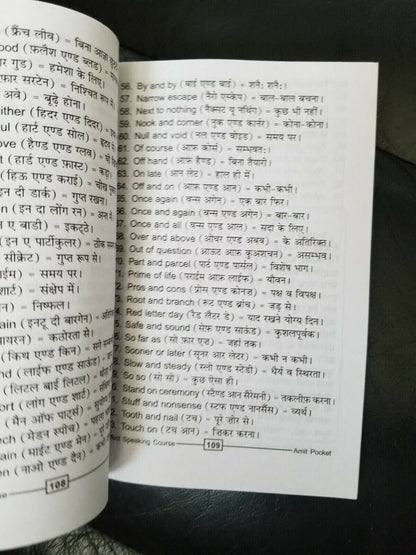 (फ्रैंच लीव) = बिना आज्ञ
ood (फ़्लैश एण्ड ब्लड) =
र गुड) = हमेशा के लिए।
फ़ार सरटेन) = निश्चित रूप
अवे) = बूढ़े होना।
ither (हिदर एण्ड दिदर) =
ul (हार्ट एण्ड सोल) =
ove (हैण्ड एण्ड ग्लव) =
t (हार्ड एण्ड फ़ास्ट) = कड़ा
(हिऊ एण्ड कराई) = चीख
इन दी डार्क) = गुप्त रखना।
(इन दा लोंग रन) =
ए बाडी) = इकट्ठे।
(इन ए पार्टीकुलर) = ठीक
सीक्रेट) = गुप्त रूप से।
ाईम) = समय पर।
शार्ट) = संक्षेप में।
= निष्फल।
ain (इनटू दी बारगेन) =
ायरन) = कठोरता से।
(किथ एण्ड किन) = सगे
and (लाईफ एण्ड साऊंड) =
(लिटल बाई लिटल) =
ort (लांग एण्ड शार्ट) =
(मैन ऑफ पार्ट्स) = सुयोग्य
(मेडन स्पीच) = पहला
ain (माईट एण्ड मेन) =
en (नाओ एण्ड दैन) =
108
56. By and by (बाई एण्ड बाई) = शनैः शनैः।
57. Narrow escape (नैरो एस्केप) = बाल-बाल बचना।
58. Next to nothing (नैक्सट यू नथिंग) = कुछ भी नहीं।
59. Nook and corner (नुक एण्ड कार्नर) = कोना-कोना।
60. Null and void (नल एण्ड वोइड) = समय पर।
61. Of course (आफ़ कोर्स) = सम्भवतः।
62. Off hand (आफ़ हैण्ड) = बिना तैयारी।
63. On late (आन लेट) = हाल ही में।
64. Off and on (आफ़ एण्ड आन) = कभी-कभी।
65. Once again (वन्स अगेन) = एक बार फिर।
66. Once and again (वन्स एण्ड अगेन) = बार-बार।
67. Once and all (वन्स एण्ड आल) = सदा के लिए।
68. Over and above (ओवर एण्ड अबव) = के अतिरिक्त।
69. Out of question (आऊट आफ़ कुअशचन) = असम्भव।
70. Part and parcel (पार्ट एण्ड पार्सल) = विशेष भाग।
71. Prime of life (पराईम आफ़ लाईफ़) = यौवन।
72. Pros and cons (प्रोस एण्ड कोनज) = पक्ष व विपक्ष।
73. Root and branch (रूट एण्ड ब्रांच) = जड़ से।
74. Red letter day (रैड लैटर डे) = याद रखने योग्य दिन।
75. Safe and sound (सेफ़ एण्ड साऊंड) = कुशलपूर्वक।
6. So far as (सो फ़ार एज) = जहां तक।
7. Sooner or later (सूनर आर लेटर) = कभी न कभी।
8. Slow and steady (स्लो एण्ड स्टेडी) = धैर्य व स्थिरता।
9. So so (सो सो) = कुछ ऐसा ही।
0. Stand on ceremony (स्टैण्ड आन सैरेमनी) = तकलीफ़ करना।
1. Stuff and nonsense (स्तफ एण्ड नानसैंस) = व्यर्थ।
2. Tooth and nail (टच) = पूरे जोर से।
3. Touch on (टच आन) = जिकर करना।
Speaking Course 109 Amit Pocket